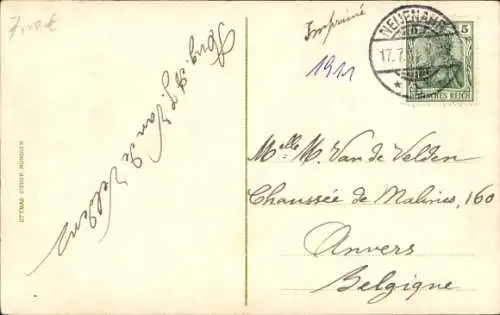 Imprimé
1911
NEUENAHR
17.7.
5
DEUTSCHES REICH
Van de Velden
OTTMAR ZIEHER, MÜNCHEN
Melle M. Van de Velden
Chaussée de Malines, 160
Anvers
Belgique